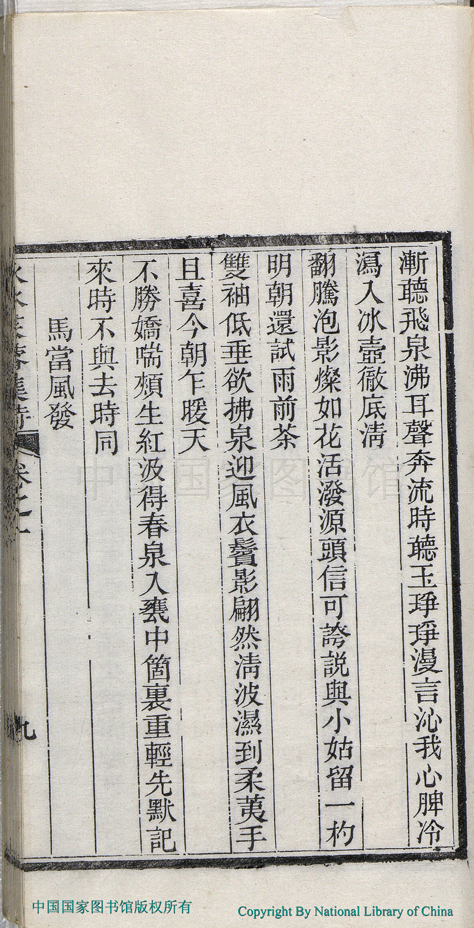 漸聽飛泉沸耳聲奔流時聽玉琤琤漫言沁我心脾冷
瀉入冰壺徹底清
翻騰泡影燦如花活潑源頭信可誇説與小姑留一杓
明朝還試雨前茶
雙袖低垂欲拂泉迎風衣鬢影翩然清波濕到柔荑手
且喜今朝乍暖天
不勝嬌喘頰生紅汲得春泉入甕中箇裏重輕先默記
來時不與去時同
馬當風發
卷之一
九
中国国家图书馆
中国国家图书馆版权所有
Copyright By National Library of China